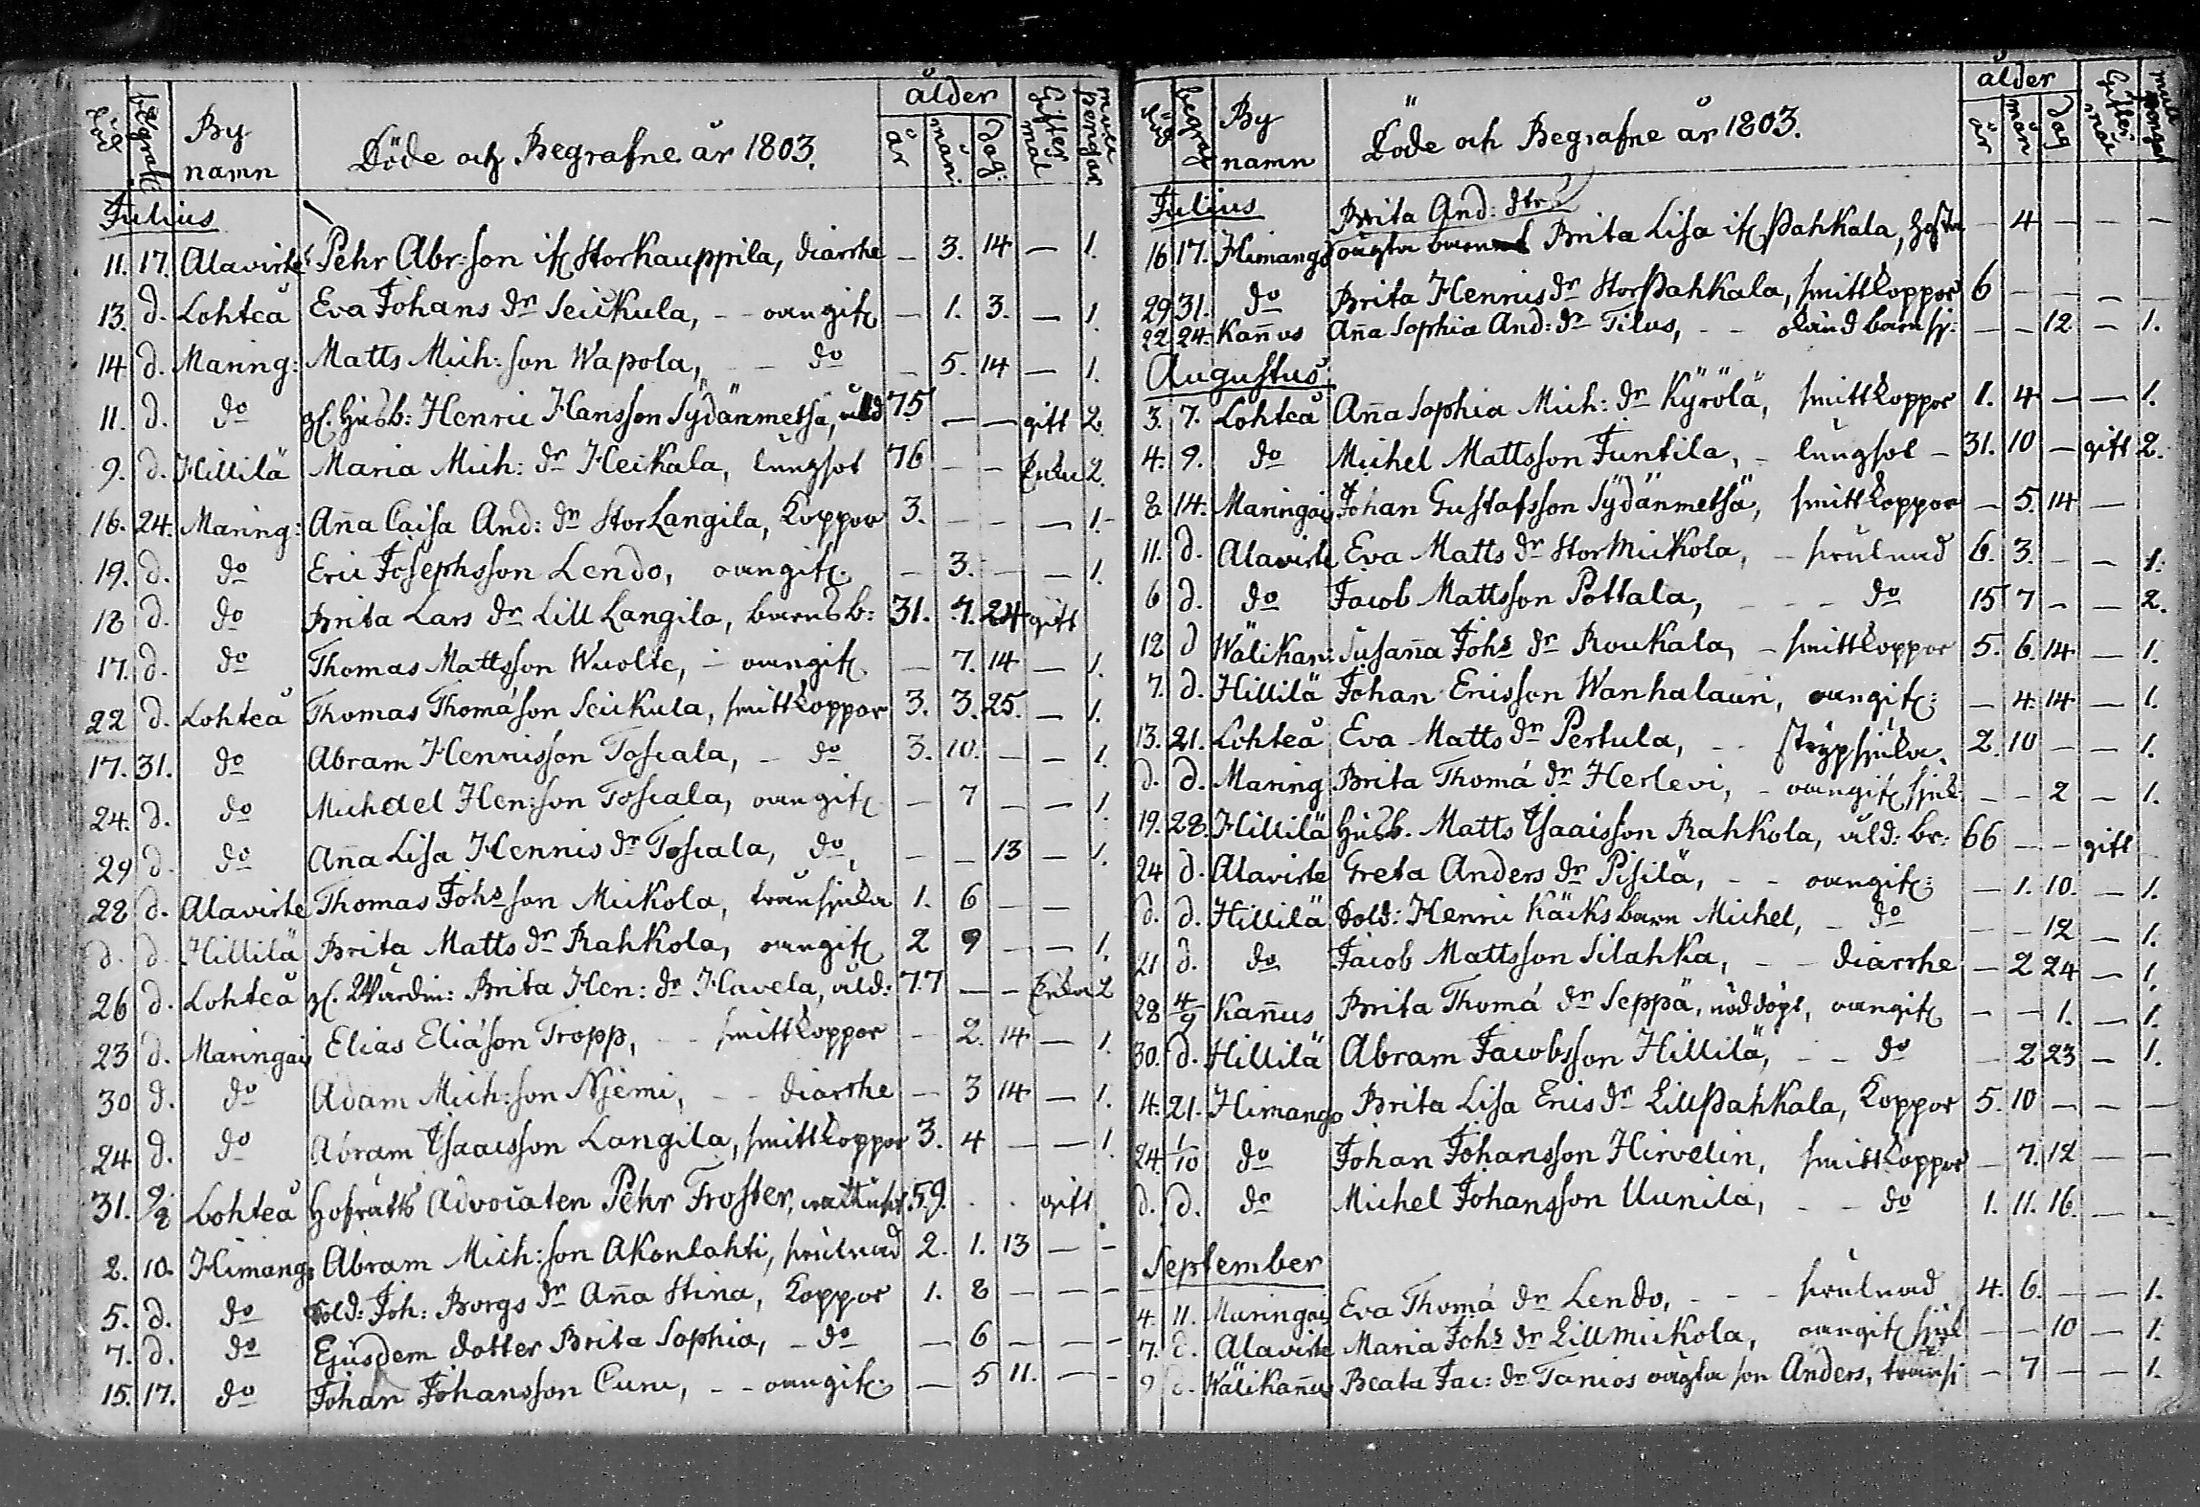 död begrafn By namn Döde och Begrafne år 1803. ålder år mån: dag: Giftermål mull pengar.
Julius
11. 17. Alavirte Pehr Abr:son if Storkauppila, diarrhe – 3. 14 – 1.
13. d. Lohteå Eva Johans dr Seikula, -- oangifv – 1. 3. – 1.
14 d. Maring: Matts Mich:son Wapola, – do – 5. 14 – 1.
11. d. do gl. Husb: Henric Hansson Sydänmetsä, åld 75 – – gift 2.
9. d. Hillilä Maria Mich: dr Heikala, lungsot 76 – – Enka 2.
16. 24. Maring: Aña Caisa And: dr StorLangila, Koppor 3. – – – 1.
19. d. do Eric Josephsson Lendo, oangifv. – 3. – – 1.
18 d. do Brita Lars dr Lill Langila, barnsb: 31. 7. 24 gift
17. d. do Thomas Mattsson Wuolte, – oangifv. – 7. 14 – 1.
22 d. Lohteå Thomas Thomásson Seikula, smittkoppor 3. 3. 25. – 1.
17. 31. do Abram Henricsson Toscala, – do 3. 10. – – 1.
24. d. do Michael Hen:son Toscala, oangifv – 7 – – 1.
29 d. do Aña Lisa Henrics dr Toscala, do, – – 13 – 1.
28 d. Alavirte Thomas Johs son Mickola, transjuka 1. 6 – –
d. d. Hillilä Brita Matts dr Rahkola, oangifv 2 9 – – 1.
26 d. Lohteå gl. Wärdin: Brita Hen: dr Havela, åld: 77 – – Enka 2
23 d. Maringais Elias Eliáson Tropp, -- smittkoppor – 2. 14 – 1.
30 d. do Adam Mich:son Njemi, -- diarrhe – 3 14 – 1.
24 d. do Abram Isaacsson Langila, smittkoppor 3. 4 – – 1.
31. 2/8 Lohteå Hofrätts Advocaten Pehr Froster, 59. . . gift
2. 10. Himang: Abram Mich:son Akonlahti, 2. 1. 13 – –
5. d. do Sold: Joh: Borgs dr Aña Stina, Koppor 1. 8 – – –
7. d. do Ejusdem dotter Brita Sophia, – do – 6 – – –
15. 17. do Johan Johansson Curu, -- oangifv. – 5 11. – –
död begraf By namn Döde och Begrafne år 1803. ålder år mån dag Giftermål mull pengar
Julius Brita And: dtr
16 17. Himango oägta barn Brita Lisa if Pahkala, – 4 – – –
29 31. do Brita Henrics dr StorPahkala, smittkoppor 6 – – – –
22 24. Kañus Aña Sophia And: dr Tilus, -- okänd barnsj: – – 12 – 1.
Augustus.
3. 7. Lohteå Aña Sophia Mich: dr Kyrölä, smittkoppor 1. 4 – – 1.
4. 9. do Michel Mattsson Juntila, – lungsot – 31. 10 – gift 2.
8 14. Maringais Johan Gustafsson Sydänmetsä, smittkoppor – 5. 14 –
11. d. Alavirte Eva Matts dr StorMickola, – 6. 3. – – 1.
6 d. do Jacob Mattsson Pottala, - - - do 15 7 – – 2.
12 d Wälikan: Susaña Johs dr Roukala, – smittkoppor 5. 6. 14 – 1.
7. d. Hillilä Johan Ericsson Wanhalauri, oangifv: – 4 14 – 1.
13. 21. Lohteå Eva Matts dr Pertula, -- strypsjuka. 2. 10 – – 1.
d. d. Maring Brita Thomá dr Herlevi, – oangifv sjuk: – – 2 – 1.
19. 28. Hillilä Husb. Matts Isaacsson Rahkola, åld: br: 66 – – gift
24 d. Alavirte Greta Anders dr Pisilä, -- oangifv: – 1. 10. – 1.
d. d. Hillilä Sold: Henric Käcks barn Michel, – do – – 12 – 1.
21 d. do Jacob Mattsson Silahka, -- diarrhe – 2 24 – 1.
28 4/9 Kañus Brita Thomá dr Seppä, nöddöpt, oangifv – – 1. – 1.
30. d. Hillilä Abram Jacobsson Hillilä, -- do – 2 23 – 1.
4. 21. Himango Brita Lisa Erics dr LillPahkala, Koppor 5. 10 – – –
24. 1/10 do Johan Johansson Hirvelin, smittkoppor – 7. 12 – –
d. d. do Michel Johansson Uunila, -- do 1. 11. 16. – –
September
4. 11. Maringais Eva Thomá dr Lendo, - - - 4. 6. – – 1.
7. d. Alavirte Maria Johs dr Lillmickola, oangifv sjuk – – 10 – 1.
9 d. Wälikañus Beata Jac: dr Tanios oägta son Anders, transj – 7 – – 1.